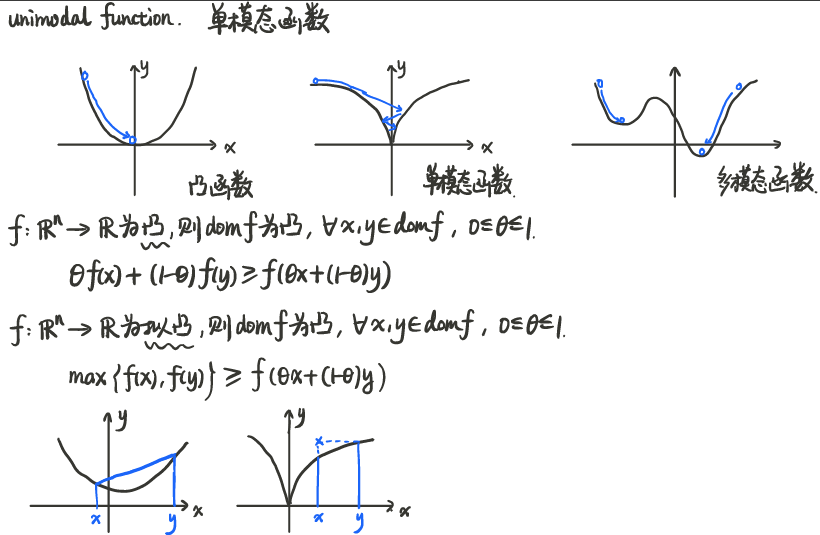 unimodal function. 单模态函数
y y
x x
凸函数 单模态函数. 多模态函数.
f: ℝⁿ → ℝ 为凸, 则 dom f 为凸, ∀x,y∈dom f, 0≤θ≤1.
θf(x) + (1-θ)f(y) ≥ f(θx+(1-θ)y)
f: ℝⁿ → ℝ 为拟凸, 则 dom f 为凸, ∀x,y∈dom f, 0≤θ≤1.
max {f(x), f(y)} ≥ f(θx+(1-θ)y)
y y
x
x x
x y x y